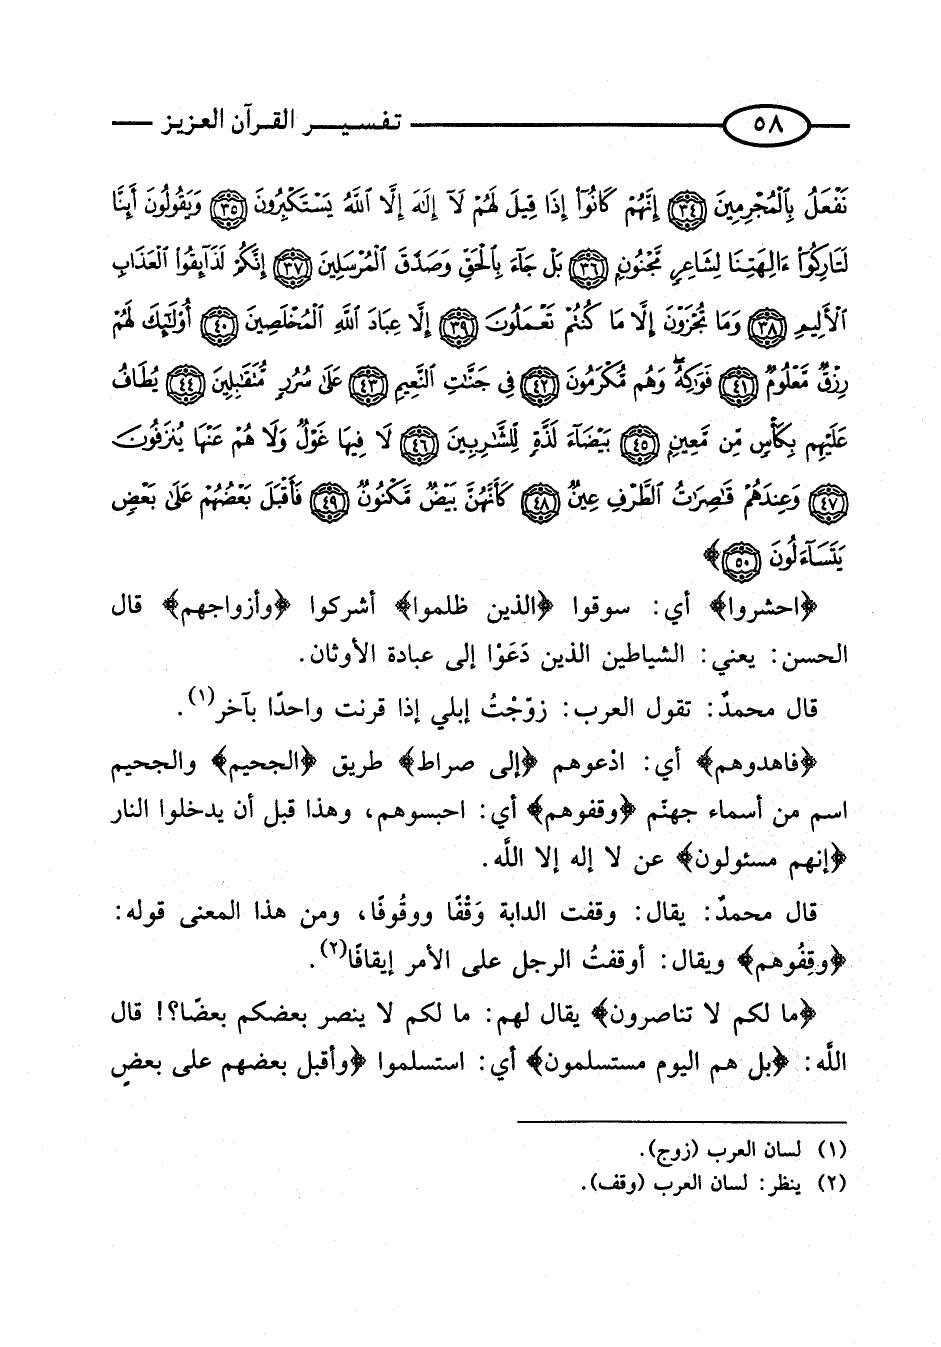 ٥٨ تفسير القرآن العزيز
نَفْعَلُ بِالْمُجْرِمِينَ ﴿٣٤﴾ إِنَّهُمْ كَانُوٓا۟ إِذَا قِيلَ لَهُمْ لَآ إِلَٰهَ إِلَّا ٱللَّهُ يَسْتَكْبِرُونَ ﴿٣٥﴾ وَيَقُولُونَ أَئِنَّا
لَتَارِكُوٓا۟ ءَالِهَتِنَا لِشَاعِرٍ مَّجْنُونٍ ﴿٣٦﴾ بَلْ جَآءَ بِالْحَقِّ وَصَدَّقَ ٱلْمُرْسَلِينَ ﴿٣٧﴾ إِنَّكُمْ لَذَآئِقُوا۟ ٱلْعَذَابِ
ٱلْأَلِيمِ ﴿٣٨﴾ وَمَا تُجْزَوْنَ إِلَّا مَا كُنتُمْ تَعْمَلُونَ ﴿٣٩﴾ إِلَّا عِبَادَ ٱللَّهِ ٱلْمُخْلَصِينَ ﴿٤٠﴾ أُو۟لَٰٓئِكَ لَهُمْ
رِزْقٌ مَّعْلُومٌ ﴿٤١﴾ فَوَٰكِهُ ۖ وَهُم مُّكْرَمُونَ ﴿٤٢﴾ فِى جَنَّٰتِ ٱلنَّعِيمِ ﴿٤٣﴾ عَلَىٰ سُرُرٍ مُّتَقَٰبِلِينَ ﴿٤٤﴾ يُطَافُ
عَلَيْهِم بِكَأْسٍ مِّن مَّعِينٍ ﴿٤٥﴾ بَيْضَآءَ لَذَّةٍ لِّلشَّٰرِبِينَ ﴿٤٦﴾ لَا فِيهَا غَوْلٌ وَلَا هُمْ عَنْهَا يُنزَفُونَ
﴿٤٧﴾ وَعِندَهُمْ قَٰصِرَٰتُ ٱلطَّرْفِ عِينٌ ﴿٤٨﴾ كَأَنَّهُنَّ بَيْضٌ مَّكْنُونٌ ﴿٤٩﴾ فَأَقْبَلَ بَعْضُهُمْ عَلَىٰ بَعْضٍ
يَتَسَآءَلُونَ ﴿٥٠﴾﴾
﴿احشروا﴾ أي: سوقوا ﴿الذين ظلموا﴾ أشركوا ﴿وأزواجهم﴾ قال
الحسن: يعني: الشياطين الذين دَعَوْا إلى عبادة الأوثان.
قال محمدٌ: تقول العرب: زوّجْتُ إبلي إذا قرنت واحدًا بآخر(١).
﴿فاهدوهم﴾ أي: ادْعوهم ﴿إلى صراط﴾ طريق ﴿الجحيم﴾ والجحيم
اسم من أسماء جهنّم ﴿وقفوهم﴾ أي: احبسوهم، وهذا قبل أن يدخلوا النار
﴿إنهم مسئولون﴾ عن لا إله إلا اللَّه.
قال محمدٌ: يقال: وقفت الدابة وَقْفًا ووقُوفًا، ومن هذا المعنى قوله:
﴿وقِفُوهم﴾ ويقال: أوقفتُ الرجل على الأمر إيقافًا(٢).
﴿ما لكم لا تناصرون﴾ يقال لهم: ما لكم لا ينصر بعضكم بعضًا؟! قال
اللَّه: ﴿بل هم اليوم مستسلمون﴾ أي: استسلموا ﴿وأقبل بعضهم على بعضٍ
(١) لسان العرب (زوج).
(٢) ينظر: لسان العرب (وقف).